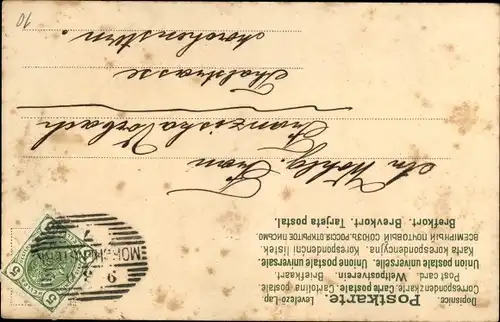 Dopisnice. Levelező-Lap.
Postkarte.
Correspondenzkarte. Carte postale. Cartolina postale
Post card. Weltpostverein. Briefkaart.
Union postale universelle. Unione postale universale.
Karta korespondencyjna. Korespondenčni listek
ВСЕМІРНЫЙ ПОЧТОВЫЙ СОЮЗЪ РОССІЯ ОТКРЫТОЕ ПИСЬМО
Brefkort. Brevkort. Tarjeta postal.
5 5
An Wohlg. Frau
Franziska
Thalstrasse
10